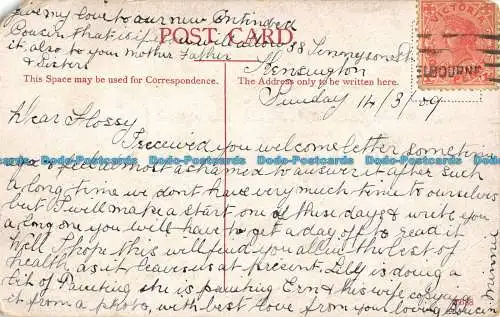 give my love to our new Intended
Cousin that is if you will allow
it, also to your Mother Father
& Sisters
POST CARD
This Space may be used for Correspondence.
The Address only to be written here.
VICTORIA
LBOURNE
38 Tennyson St
Kensington
Sunday 14/3/09
Dear Flossy
I received you welcome letter sometime
ago I feel almost ashamed to answer it after such
Dodo-Postcards Dodo-Postcards Dodo-Postcards Dodo-Postcards Dodo-Postcards
a long time we dont have very much time to ourselves
but I will make a start one of these days & write you
a long one you will have to get a day off to read it
Well I hope this will find you all in the best of
health, as it leaves us at present. Lilly is doing a
bit of Painting she is painting Ern & his wife copying
it from a photo, with best love from your loving Cousin
Minnie